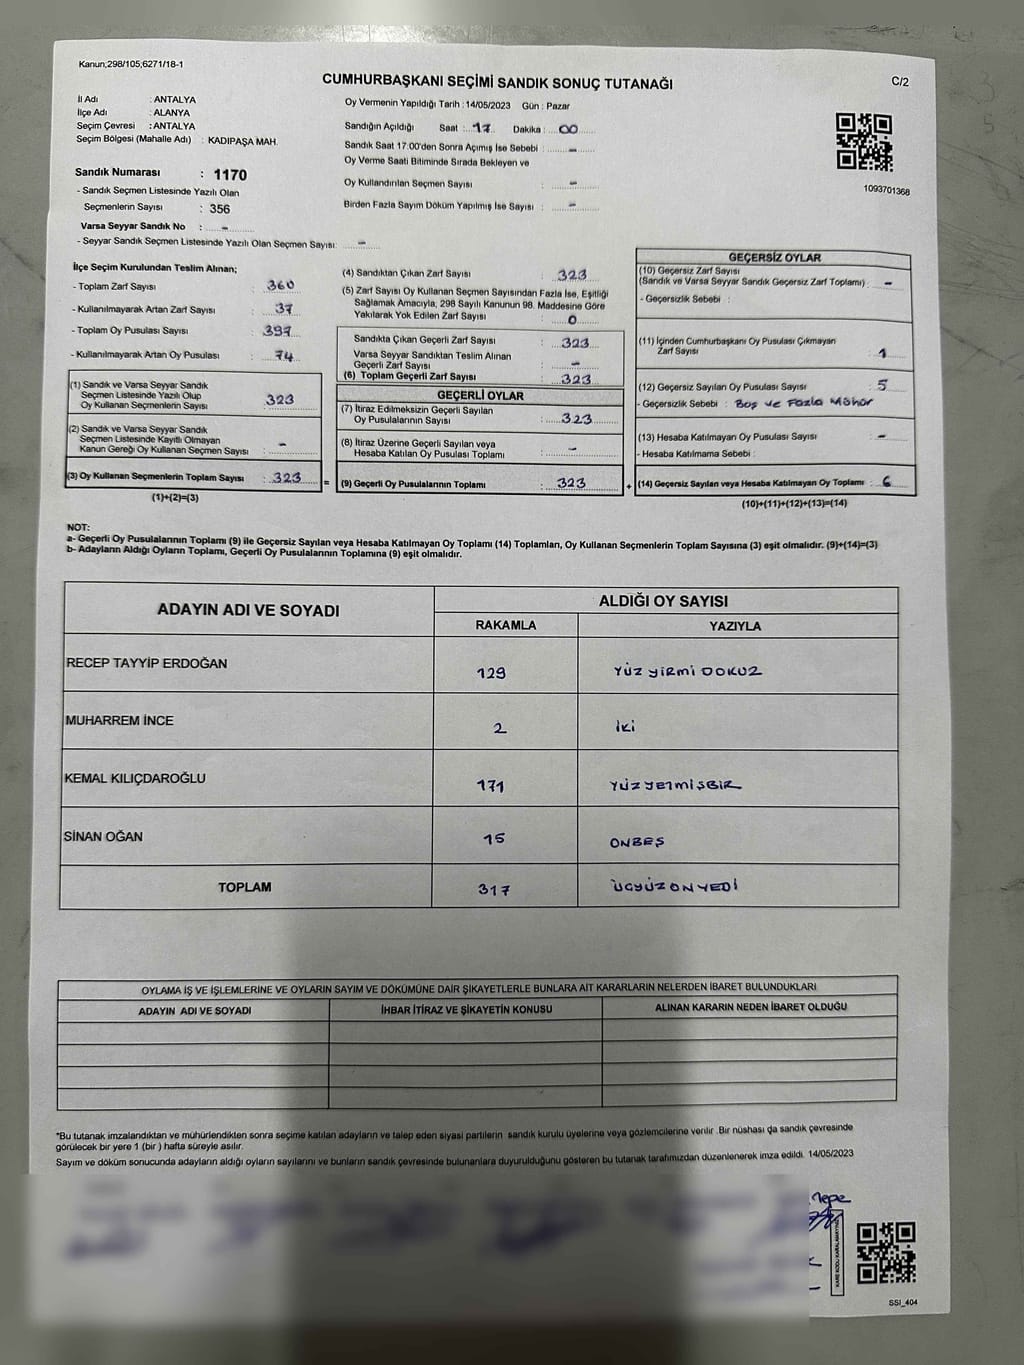 Kanun;298/105;6271/18-1
CUMHURBAŞKANI SEÇİMİ SANDIK SONUÇ TUTANAĞI
C/2
İl Adı : ANTALYA
İlçe Adı : ALANYA
Seçim Çevresi : ANTALYA
Seçim Bölgesi (Mahalle Adı) : KADIPAŞA MAH.
Oy Vermenin Yapıldığı Tarih : 14/05/2023 Gün : Pazar
Sandığın Açıldığı Saat : 17 Dakika : 00
Sandık Saat 17:00'den Sonra Açımış İse Sebebi : -
Oy Verme Saati Bitiminde Sırada Bekleyen ve
Oy Kullandırılan Seçmen Sayısı : -
Birden Fazla Sayım Döküm Yapılmış İse Sayısı : -
1093701368
Sandık Numarası : 1170
- Sandık Seçmen Listesinde Yazılı Olan
Seçmenlerin Sayısı : 356
Varsa Seyyar Sandık No : -
- Seyyar Sandık Seçmen Listesinde Yazılı Olan Seçmen Sayısı: -
İlçe Seçim Kurulundan Teslim Alınan;
- Toplam Zarf Sayısı : 360
- Kullanılmayarak Artan Zarf Sayısı : 37
- Toplam Oy Pusulası Sayısı : 397
- Kullanılmayarak Artan Oy Pusulası : 74
(1) Sandık ve Varsa Seyyar Sandık
Seçmen Listesinde Yazılı Olup
Oy Kullanan Seçmenlerin Sayısı : 323
(2) Sandık ve Varsa Seyyar Sandık
Seçmen Listesinde Kayıtlı Olmayan
Kanun Gereği Oy Kullanan Seçmen Sayısı : -
(3) Oy Kullanan Seçmenlerin Toplam Sayısı : 323
(1)+(2)=(3)
(4) Sandıktan Çıkan Zarf Sayısı : 323
(5) Zarf Sayısı Oy Kullanan Seçmen Sayısından Fazla İse, Eşitliği
Sağlamak Amacıyla, 298 Sayılı Kanunun 98. Maddesine Göre
Yakılarak Yok Edilen Zarf Sayısı : 0
Sandıkta Çıkan Geçerli Zarf Sayısı : 323
Varsa Seyyar Sandıktan Teslim Alınan
Geçerli Zarf Sayısı : -
(6) Toplam Geçerli Zarf Sayısı : 323
GEÇERLİ OYLAR
(7) İtiraz Edilmeksizin Geçerli Sayılan
Oy Pusulalarının Sayısı : 323
(8) İtiraz Üzerine Geçerli Sayılan veya
Hesaba Katılan Oy Pusulası Toplamı : -
= (9) Geçerli Oy Pusulalarının Toplamı : 323
GEÇERSİZ OYLAR
(10) Geçersiz Zarf Sayısı
(Sandık ve Varsa Seyyar Sandık Geçersiz Zarf Toplamı) : -
- Geçersizlik Sebebi :
(11) İçinden Cumhurbaşkanı Oy Pusulası Çıkmayan
Zarf Sayısı : 1
(12) Geçersiz Sayılan Oy Pusulası Sayısı : 5
- Geçersizlik Sebebi : Boş ve Fazla Mühür
(13) Hesaba Katılmayan Oy Pusulası Sayısı : -
- Hesaba Katılmama Sebebi :
+ (14) Geçersiz Sayılan veya Hesaba Katılmayan Oy Toplamı : 6
(10)+(11)+(12)+(13)=(14)
NOT:
a- Geçerli Oy Pusulalarının Toplamı (9) ile Geçersiz Sayılan veya Hesaba Katılmayan Oy Toplamı (14) Toplamları, Oy Kullanan Seçmenlerin Toplam Sayısına (3) eşit olmalıdır. (9)+(14)=(3)
b- Adayların Aldığı Oyların Toplamı, Geçerli Oy Pusulalarının Toplamına (9) eşit olmalıdır.
ADAYIN ADI VE SOYADI
ALDIĞI OY SAYISI
RAKAMLA YAZIYLA
RECEP TAYYİP ERDOĞAN 129 YÜZ YİRMİ DOKUZ
MUHARREM İNCE 2 İKİ
KEMAL KILIÇDAROĞLU 171 YÜZYETMİŞBİR
SİNAN OĞAN 15 ONBEŞ
TOPLAM 317 ÜÇYÜZONYEDİ
OYLAMA İŞ VE İŞLEMLERİNE VE OYLARIN SAYIM VE DÖKÜMÜNE DAİR ŞİKAYETLERLE BUNLARA AİT KARARLARIN NELERDEN İBARET BULUNDUKLARI
ADAYIN ADI VE SOYADI İHBAR İTİRAZ VE ŞİKAYETİN KONUSU ALINAN KARARIN NEDEN İBARET OLDUĞU
*Bu tutanak imzalandıktan ve mühürlendikten sonra seçime katılan adayların ve talep eden siyasi partilerin sandık kurulu üyelerine veya gözlemcilerine verilir .Bir nüshası da sandık çevresinde
görülecek bir yere 1 (bir ) hafta süreyle asılır.
Sayım ve döküm sonucunda adayların aldığı oyların sayılarını ve bunların sandık çevresinde bulunanlara duyurulduğunu gösteren bu tutanak tarafımızdan düzenlenerek imza edildi. 14/05/2023
Tepe
KARE KODU KARALAMAYINIZ
SSI_404